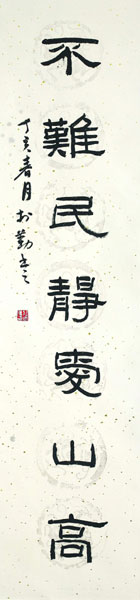 不難民靜愛山高
丁亥春月於勤書之